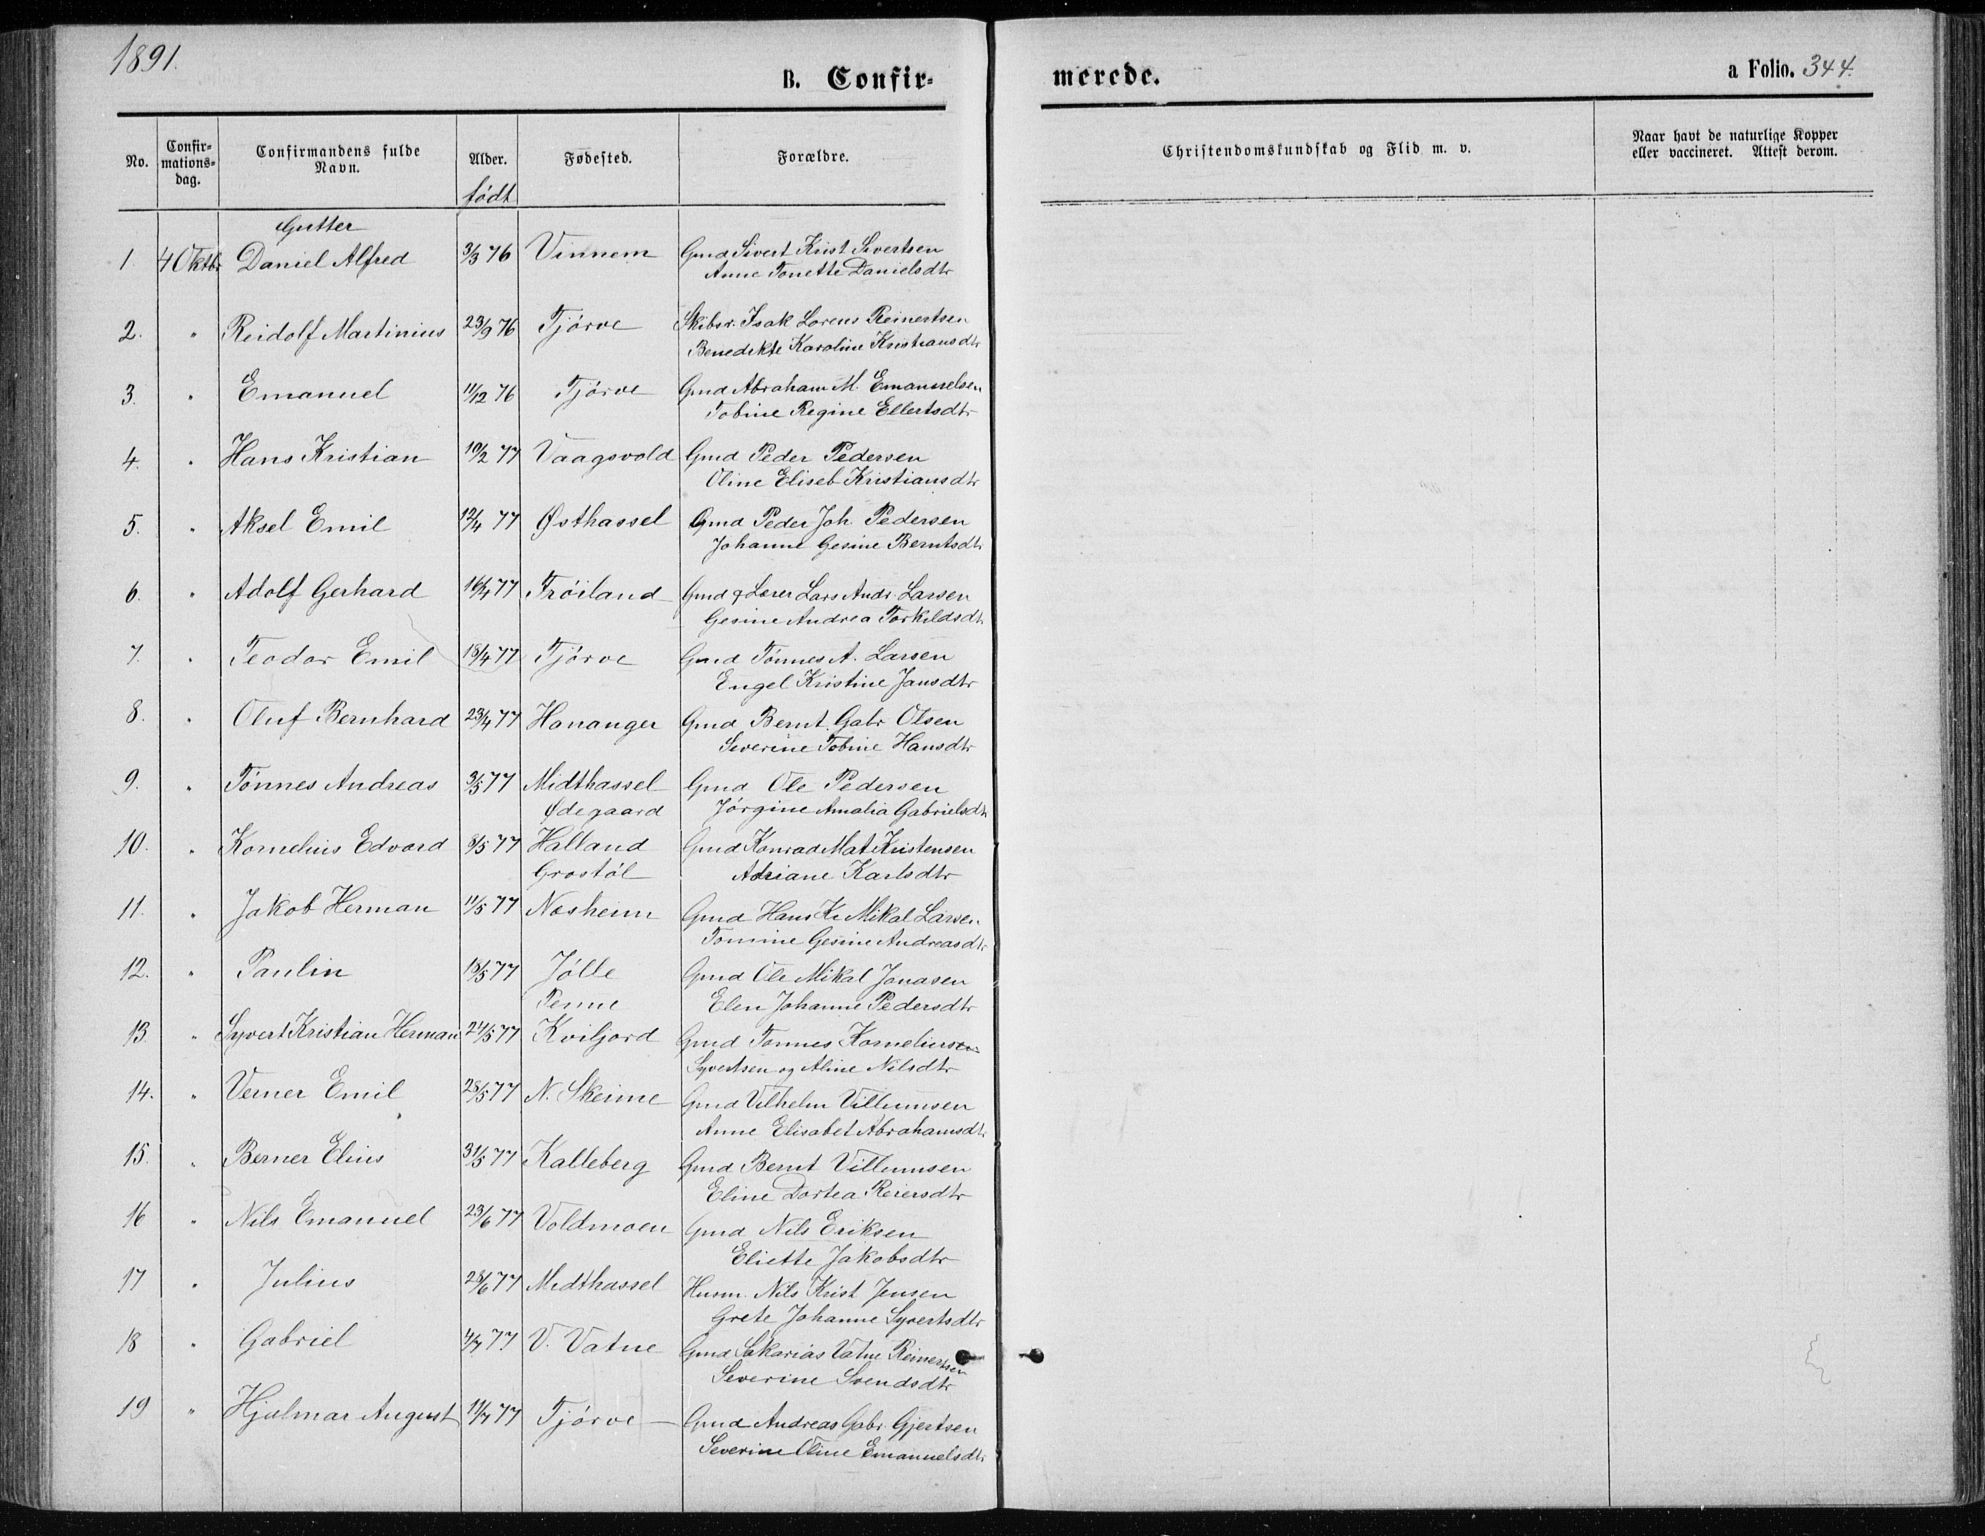 1891.
B. Confir-
merede.
a Folio. 344.
No.
Confir-
mations-
dag.
Confirmandens fulde
Navn.
Alder.
født
Fødested.
Forældre.
Christendomskundskab og Flid m. v.
Naar havt de naturlige Kopper
eller vaccineret. Attest derom.
Gutter
1 4 Oktbr Daniel Alfred 3/3 76 Vinnem Gmd Sivert Krist Sivertsen
Anne Tonette Danielsdtr
2. " Reidolf Martinius 23/9 76 Tjørve Skibsr. Isak Lorens Reinertsen
Benedikte Karoline Kristiansdtr
3. " Emanuel 11/12 76 Tjørve Gmd Abraham M. Emanuelsen
Tobine Regine Ellertsdtr
4. " Hans Kristian 10/2 77 Vaagsvold Gmd Peder Pedersen
Oline Eliseb Kristiansdtr
5. " Aksel Emil 12/4 77 Østhassel Gmd Peder Joh. Pedersen
Johanne Gesine Berntsdtr
6. " Adolf Gerhard 16/4 77 Trøiland Gmd & Lærer Lars Andr. Larsen
Gesine Andrea Torkildsdtr
7. " Teodor Emil 18/4 77 Tjørve Gmd Tønnes A. Larsen
Engel Kristine Jansdtr
8. " Oluf Bernhard 23/4 77 Hananger Gmd Bernt Gabr Olsen
Severine Tobine Hansdtr
9. " Tønnes Andreas 3/5 77 Midthassel Gmd Ole Pedersen
Ødegaard Jørgine Amalia Gabrielsdtr
10. " Kornelius Edvard 8/5 77 Halland Gmd Konrad Mat Kristensen
Grostøl Adriane Karlsdtr
11. " Jakob Herman 11/5 77 Nesheim Gmd Hans Kr Mikal Larsen
Tomine Gesine Andreasdtr
12. " Paulin 18/5 77 Jølle Gmd Ole Mikal Jonasen
Penne Elen Johanne Pedersdtr
13. " Syvert Kristian Herman 24/5 77 Kviljord Gmd Tønnes Korneliusen
Syvertsen og Aline Nilsdtr
14. " Verner Emil 28/5 77 N. Skeime Gmd Vilhelm Villumsen
Anne Elisabet Abrahamsdtr
15. " Berner Elius 31/5 77 Kalleberg Gmd Bernt Villumsen
Eline Dortea Reiersdtr
16 " Nils Emanuel 23/6 77 Voldmoen Gmd Nils Eriksen
Eliette Jakobsdtr
17 " Julius 28/6 77 Midthassel Husm. Nils Krist Jensen
Grete Johanne Syvertsdtr
18 " Gabriel 4/7 77 V. Vatne Gmd Sakarias Vatne Reinertsen
Severine Svendsdtr
19 " Hjalmar August 11/7 77 Tjørve Gmd Andreas Gabr. Gjertsen
Severine Oline Emanuelsdtr